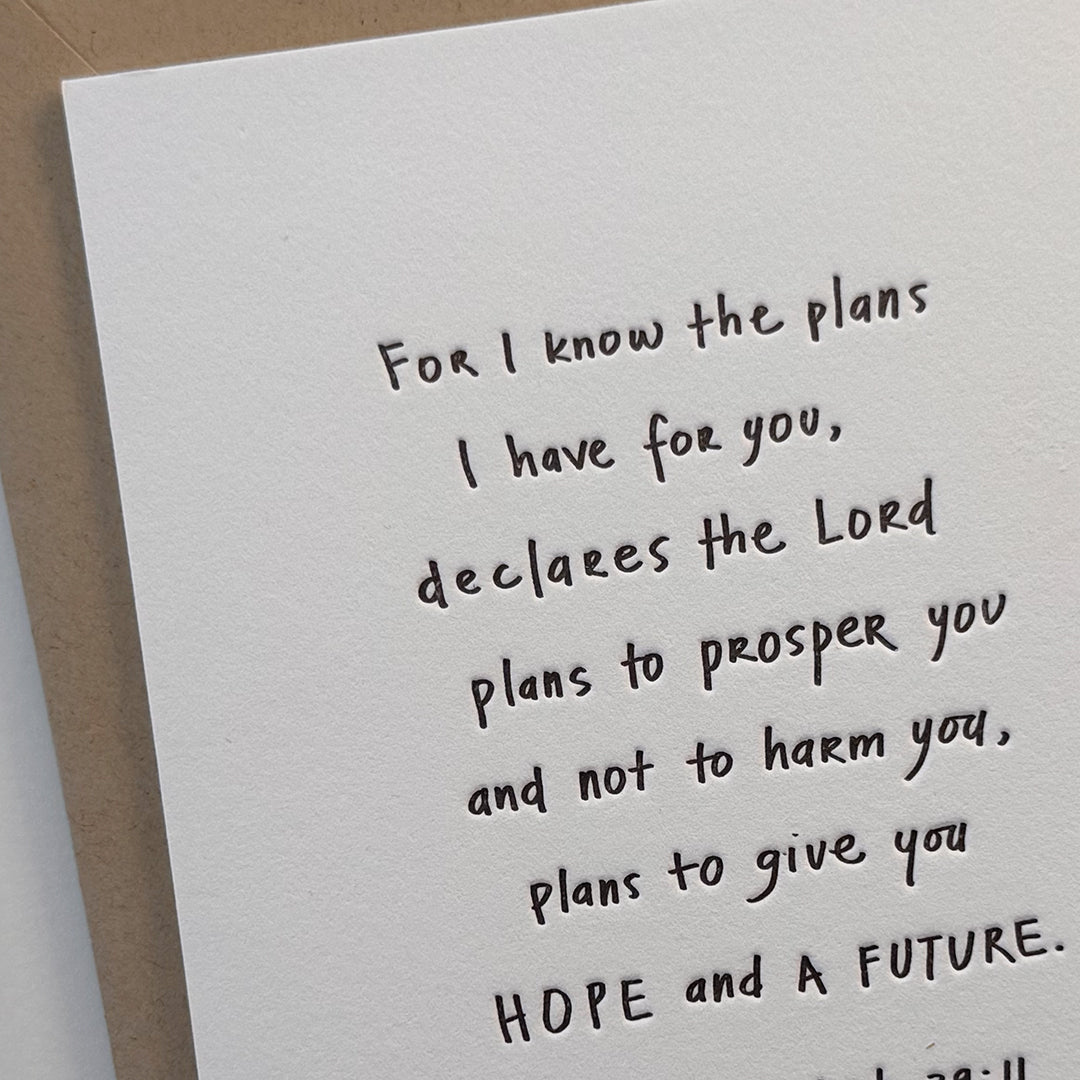 FOR I know the plans
I have foR you,
declaRes the LoRd
plans to pRospeR you
and not to haRm you,
plans to give you
HOPE and A FUTURE.
29:11